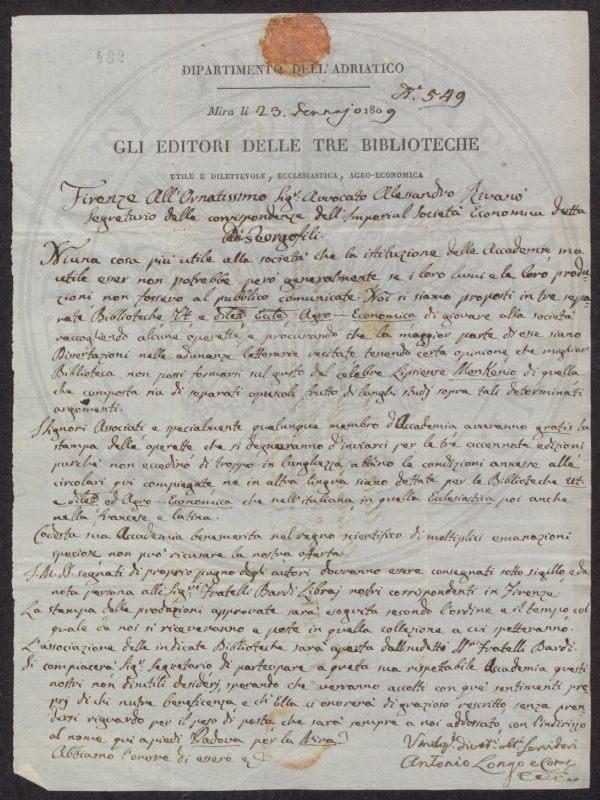 482
DIPARTIMENTO DELL'ADRIATICO
N.° 549
Mira li 23. Gennajo 1809
GLI EDITORI DELLE TRE BIBLIOTECHE
UTILE E DILETTEVOLE, ECCLESIASTICA, AGRO-ECONOMICA
Firenze All'Ornatissimo Sigr. Avvocato Alessandro Rivani
Segretario delle corrispondenze dell'Imperial Società Economica detta
de' Georgofili.
Niuna cosa più utile alla società che la istituzione delle Accademie ma
utile esser non potrebbe però generalmente se i loro lumi e le loro produ-
zioni non fossero al pubblico comunicate. Noi ci siamo proposti in tre sepa-
rate Biblioteche Ut. e dilett. Eccle. Agro-Economica di giovare alla società
raccogliendo alcune operette e procurando che la maggior parte di esse siano
Dissertazioni nelle adunanze letterarie recitate tenendo certa opinione che miglior
Biblioteca non possi formarsi sul gusto del celebre Lipsiense Menkenio di quella
che composta sia di separati opuscoli frutto di lunghi studj sopra tali determinati
argomenti.
I Signori Associati e specialmente qualunque membro d'Accademia avranno gratis la
stampa delle operette che si degneranno d'inviarci per le tre accennate edizioni
purchè non eccedino di troppo in lunghezza abbino le condizioni annesse alle
circolari qui compiegate ne in altra lingua siano dettate per le Biblioteche Ut.
e dilett. ed Agro-Economica che nell'italiana, in quella Ecclesiastica poi anche
nella francese e latina.
Codesta sua Accademia benemerita nel regno scientifico di moltiplici emanazioni
speciose non può ricusare la nostra offerta.
I M. SS. segnati di proprio pugno degli autori dovranno essere consegnati sotto sigillo e da
nota persona alli Sigri. Fratelli Bardi Libraj nostri corrispondenti in Firenze.
La stampa delle produzioni approvate sarà eseguita secondo l'ordine e il tempo col
quale da noi si riceveranno e poste in quella collezione a cui spetteranno.
L'associazione delle indicate Biblioteche sarà aperta dalli sudetti Sri. fratelli Bardi.
Si compiacerà Sigr. Segretario di partecipare a questa sua rispettabile Accademia questi
nostri non inutili desiderj, sperando che verranno accolti con que' sentimenti pro-
prj di chi nutre beneficenza e ch'Ella ci onorerà di grazioso rescritto senza pren-
dersi riguardo per il peso di posta che sarà sempre a noi addossato con l'indirizzo
al nome qui a piedi Padova per la Mira.
Abbiamo l'onore di essere
Servidori
Antonio Longo e Comp.